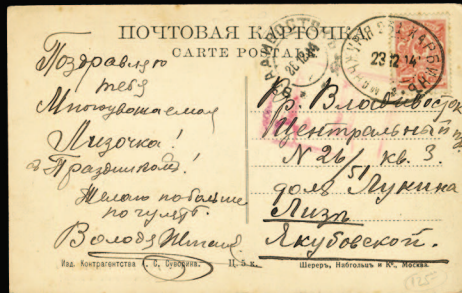 ПОЧТОВАЯ КАРТОЧКА
CARTE POSTALE
23 12 14
Поздравляю
тебя
Многоуважаемая
Лизочка!
с Праздником!
Желаю побольше
погулять
Володя
Гр. Владивосток
Центральный
N 26/51 кв. 3.
домъ Лукина
Лизѣ
Якубовской.
Изд. Контрагентства А. С. Суворина. Ц. 5 к.
Шереръ, Набгольцъ и Ко, Москва.
125-